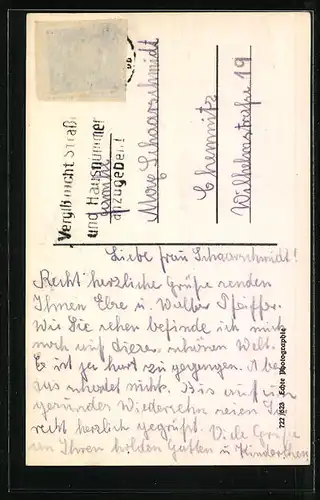 Vergiß nicht Straße
und Hausnummer
anzugeben!
Familie
Max Schaarschmidt
Chemnitz
Wilhelmstraße 19
Liebe Frau Schaarschmidt!
Recht herzliche Grüße senden
Ihnen Else u. Walter Pfeiffer.
Wie Sie sehen befinde ich mich
noch auf dieser schönen Welt.
Es ist ja hart zu gegangen. Aber
das schadet nicht. Bis auf ein
gesundes Wiedersehn seien Sie
recht herzlich gegrüßt. Viele Grüße
an Ihren holden Gatten u. Kinderchen
722/623 Echte Photographie